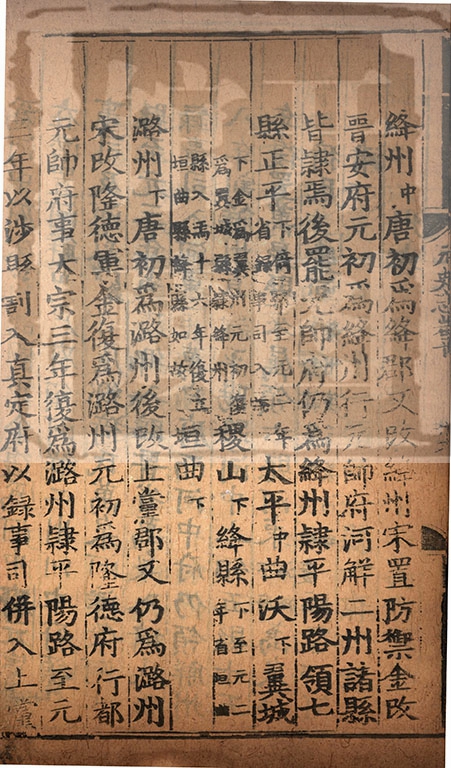 絳州中唐初爲絳郡又改絳州宋置防禦金改
晉安府元初爲絳州行元帥府河解二州諸縣
皆隷焉後罷元帥府仍爲絳州隷平陽路領七
縣正平下倚郭至元二年省録事司入焉太平中曲沃下翼城
下金爲翼州元初復爲翼城縣隷絳州稷山下絳縣下至元二年省垣曲
縣入焉十六年復立垣曲縣絳縣如故垣曲下
潞州下唐初爲潞州後改上黨郡又仍爲潞州
宋改隆德軍金復爲潞州元初爲隆德府行都
元帥府事太宗三年復爲潞州隷平陽路至元
三年以涉縣割入真定府以録事司併入上黨